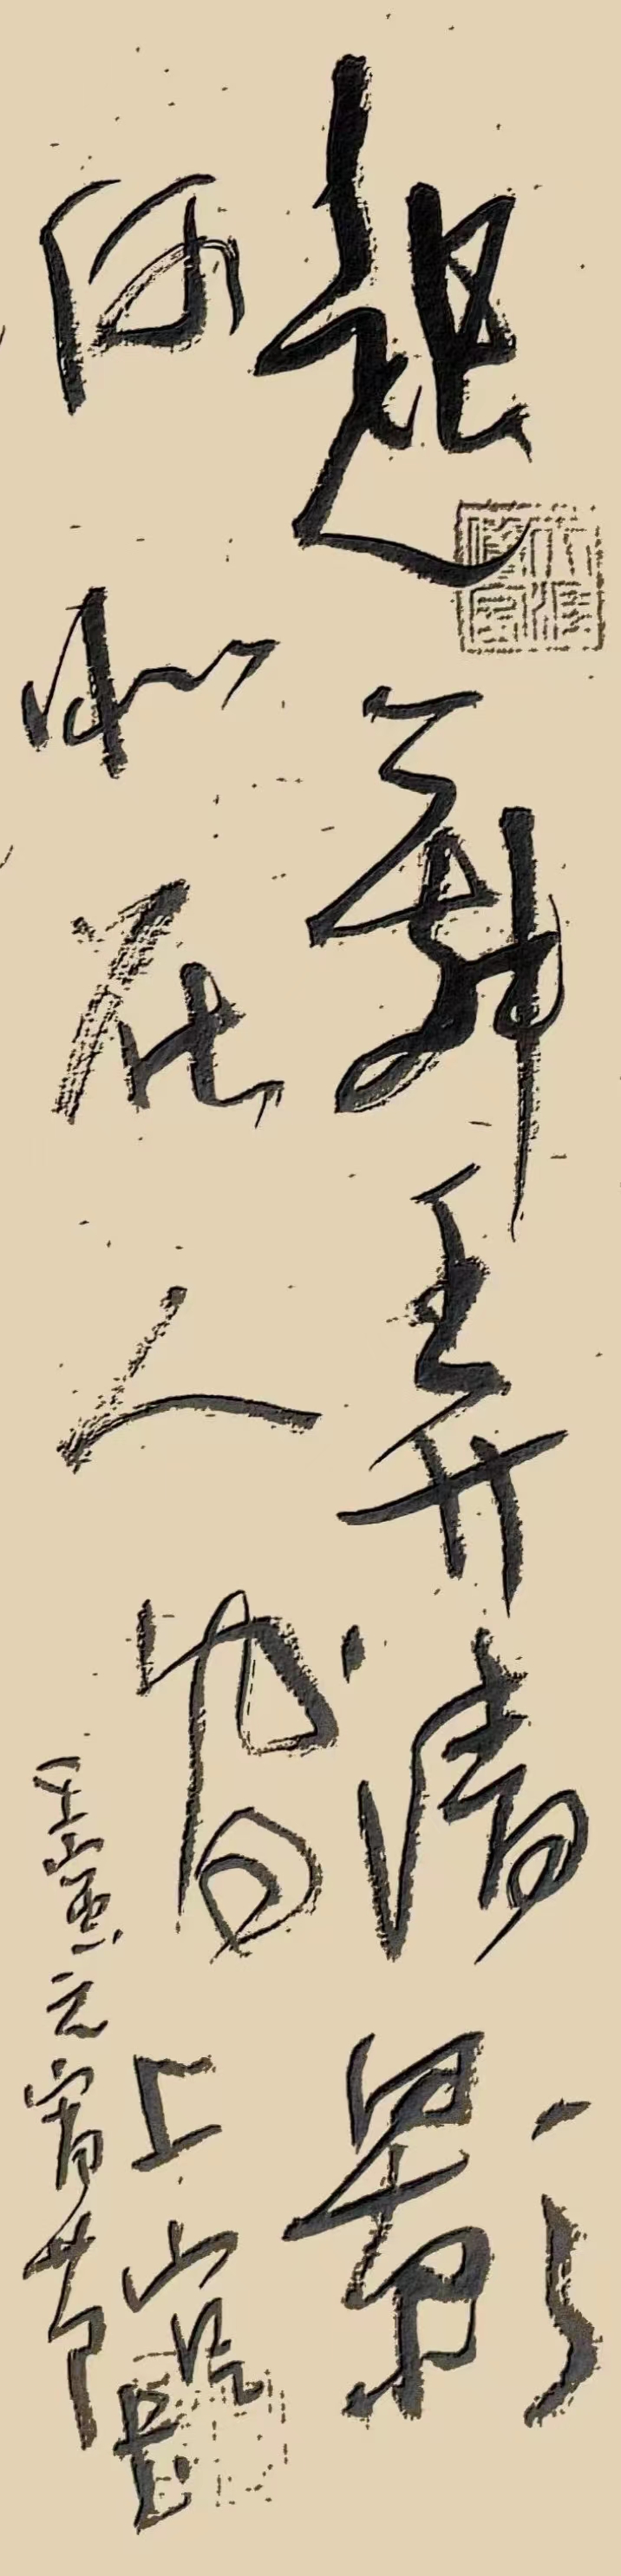 起舞弄清影
何似在人間 上山
壬寅元宵节